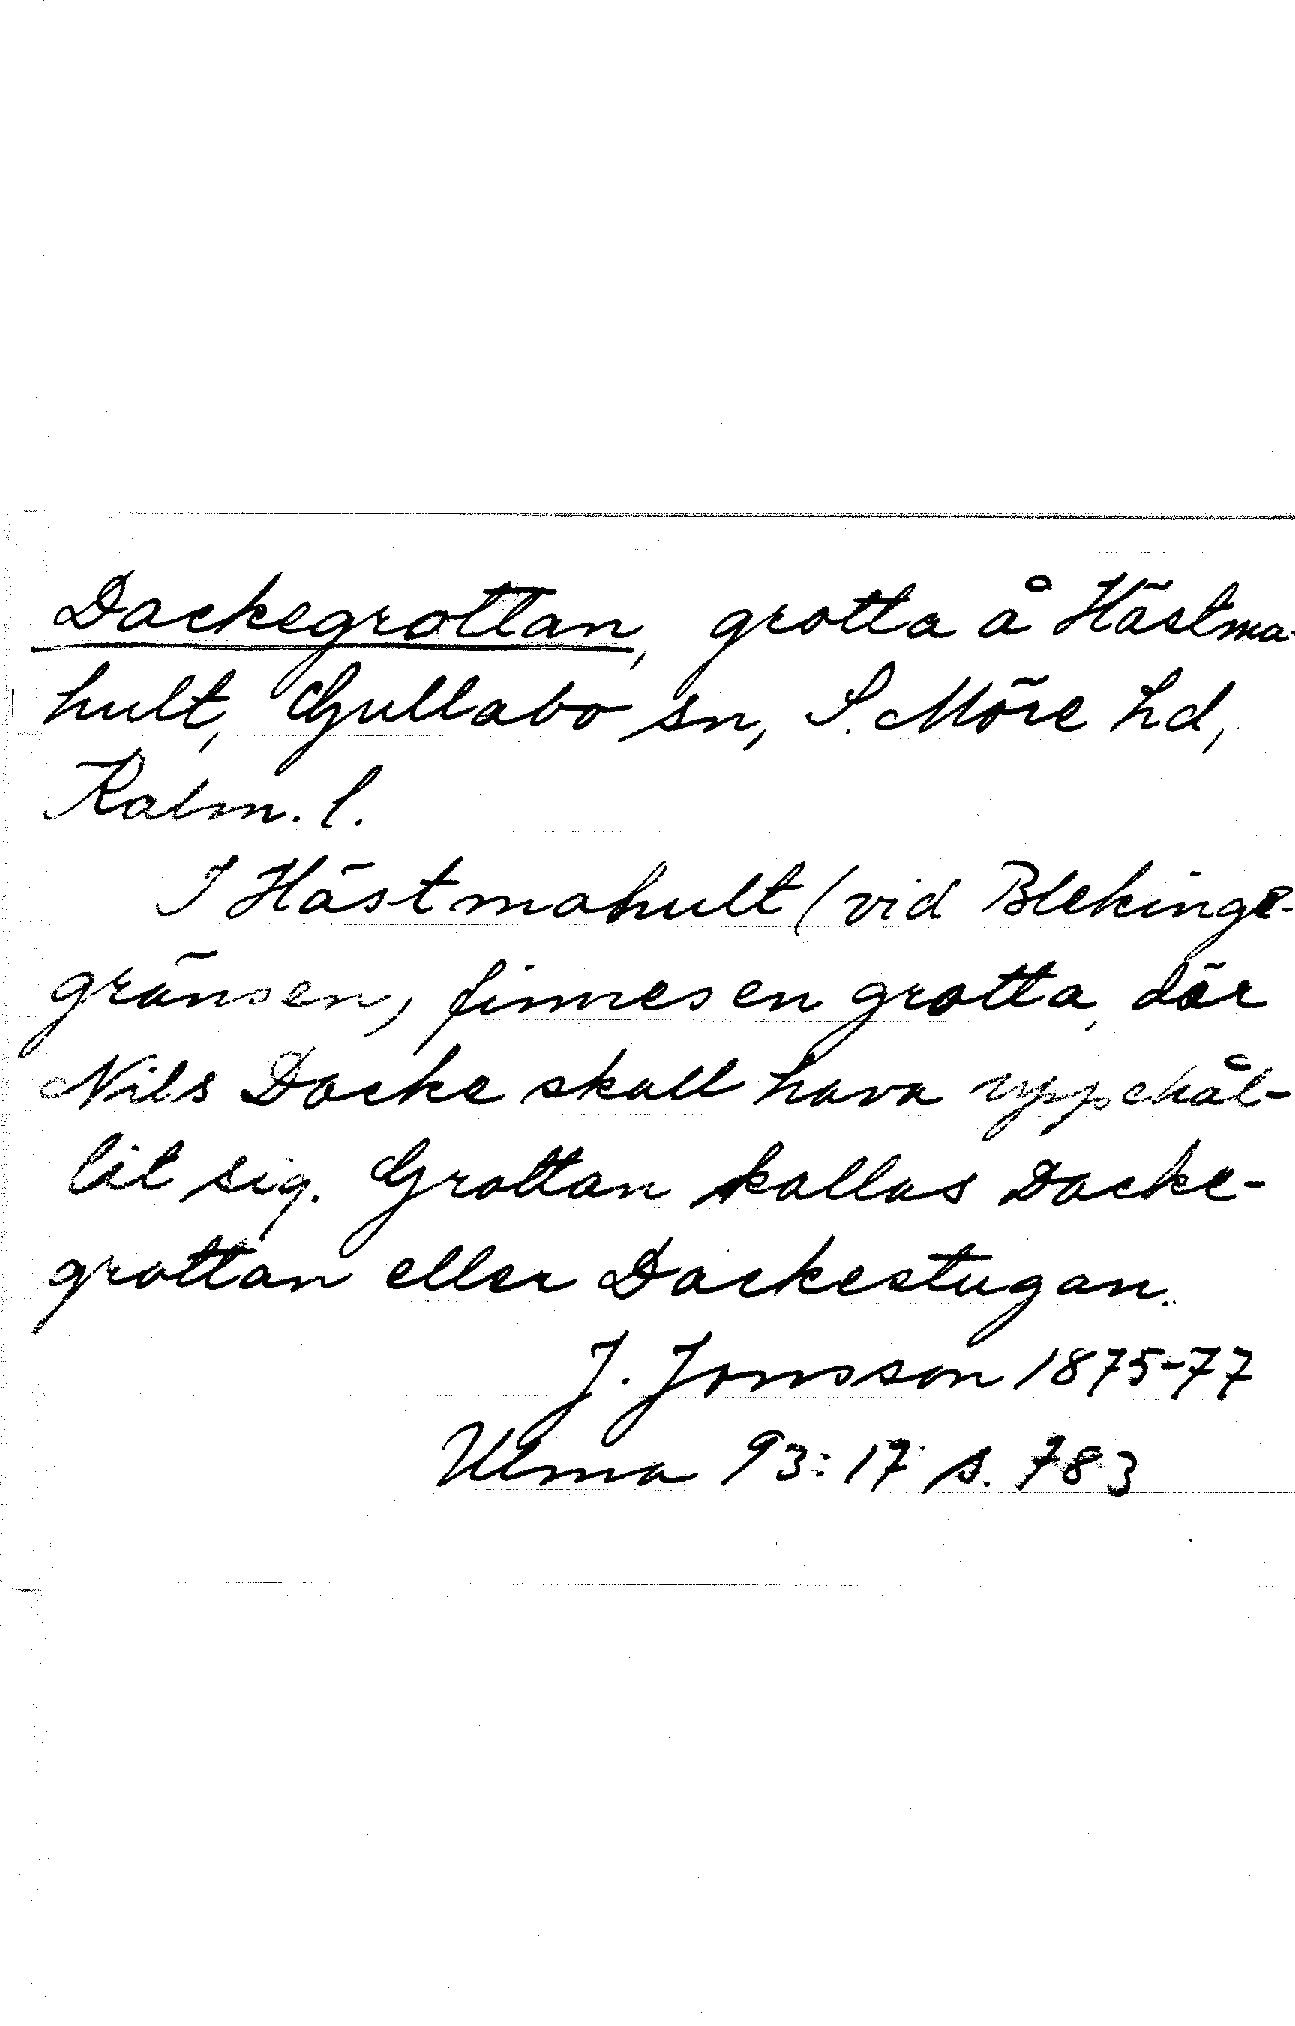 Dackegrottan, grotta å Hästma-
hult, Gullabo sn, S. Möre hd,
Kalm. l.
I Hästmahult (vid Blekinge-
gränsen) finnes en grotta, där
Nils Dacke skall hava uppehål-
lit sig. Grottan kallas Dacke-
grottan eller Dackestugan.
J. Jonsson 1875-77
Ulma 93:17 s. 783